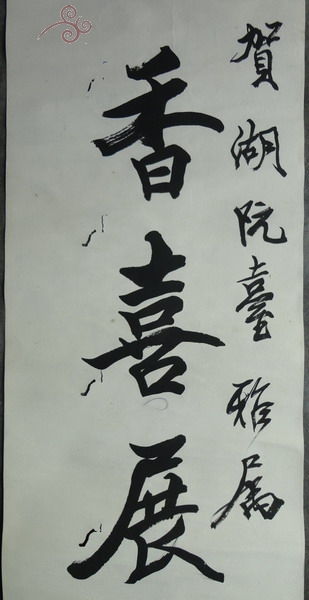 賀湖阮臺雅屬
香喜展